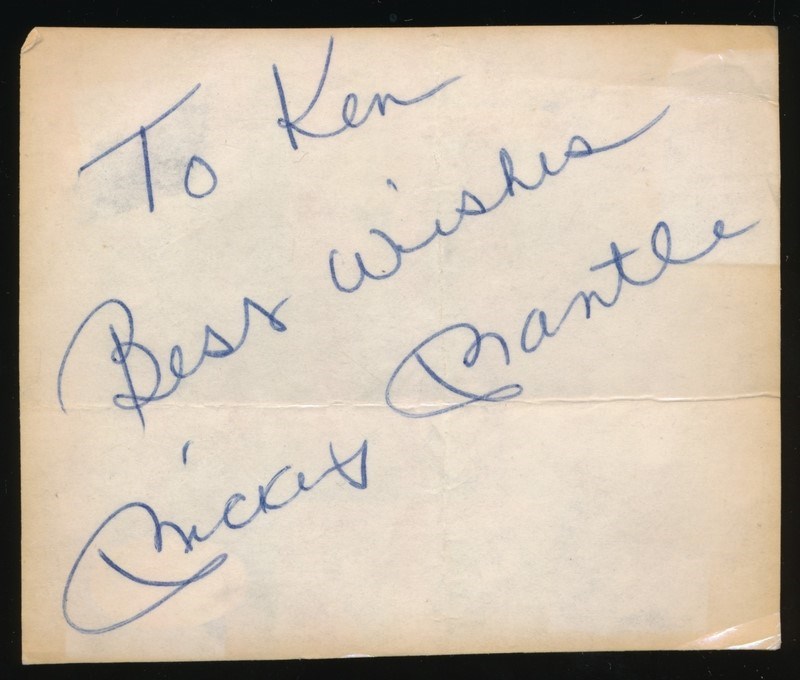 To Ken
Best Wishes
Mickey Mantle